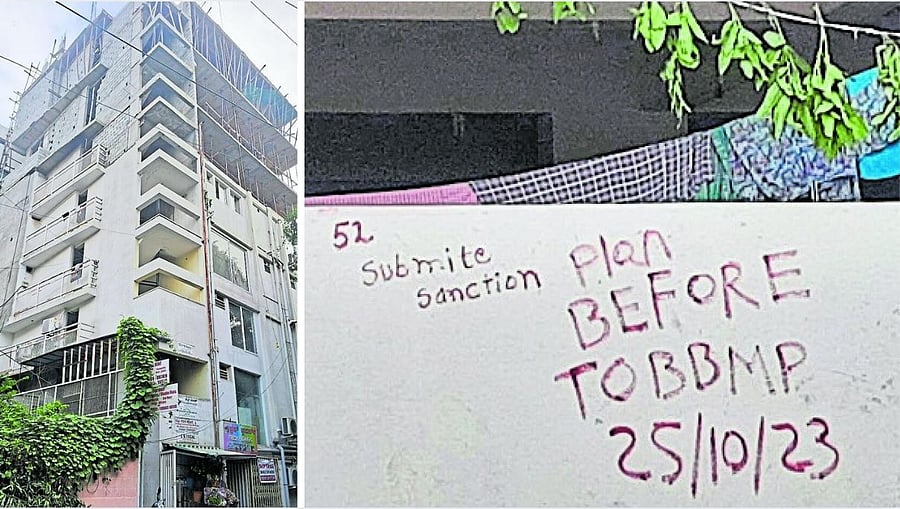 52
Submite plan
Sanction
BEFORE
TOBBMP
25/10/23